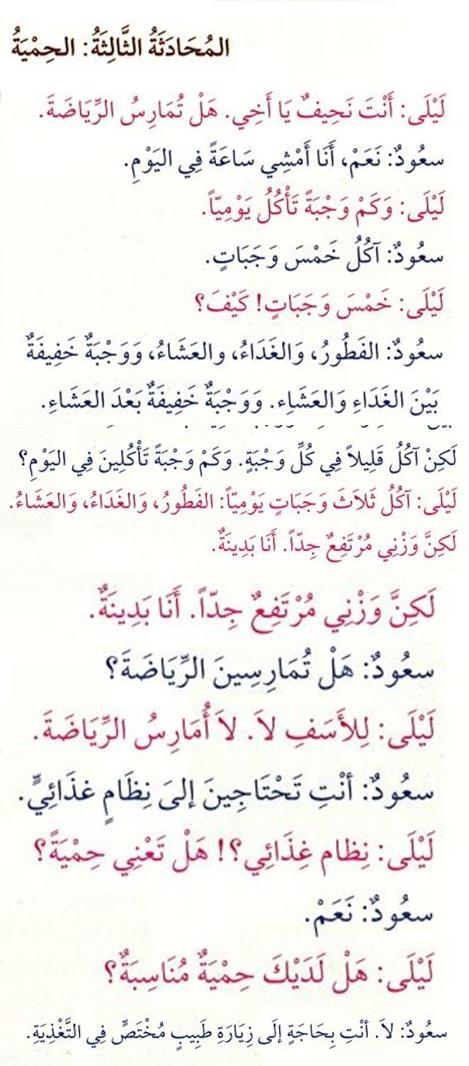 المُحَادَثَةُ الثَّالِثَةُ: الحِمْيَةُ
لَيْلَى: أَنْتَ نَحِيفٌ يَا أَخِي. هَلْ تُمَارِسُ الرِّيَاضَةَ.
سعُودٌ: نَعَمْ، أَنَا أَمْشِي سَاعَةً فِي اليَوْمِ.
لَيْلَى: وَكَمْ وَجْبَةً تَأْكُلُ يَوْمِيّاً.
سعُودٌ: آكُلُ خَمْسَ وَجَبَاتٍ.
لَيْلَى: خَمْسَ وَجَبَاتٍ! كَيْفَ؟
سعُودٌ: الفَطُورُ، وَالغَدَاءُ، والعَشَاءُ، وَوَجْبَةٌ خَفِيفَةٌ
بَيْنَ الغَدَاءِ وَالعَشَاءِ. وَوَجْبَةٌ خَفِيفَةٌ بَعْدَ العَشَاءِ.
لَكِنْ آكُلُ قَلِيلاً فِي كُلِّ وَجْبَةٍ. وَكَمْ وَجْبَةً تَأْكُلِينَ فِي اليَوْمِ؟
لَيْلَى: آكُلُ ثَلاَثَ وَجَبَاتٍ يَوْمِيّاً: الفَطُورُ، وَالغَدَاءُ، وَالعَشَاءُ.
لَكِنَّ وَزْنِي مُرْتَفِعٌ جِدّاً. أَنَا بَدِينَةٌ.
لَكِنَّ وَزْنِي مُرْتَفِعٌ جِدّاً. أَنَا بَدِينَةٌ.
سعُودٌ: هَلْ تُمَارِسِينَ الرِّيَاضَةَ؟
لَيْلَى: لِلأَسَفِ لاَ. لاَ أُمَارِسُ الرِّيَاضَةَ.
سعُودٌ: أنْتِ تَحْتَاجِينَ إلىَ نِظَامٍ غذَائِيٍّ.
لَيْلَى: نِظام غِذَائِي؟! هَلْ تَعْنِي حِمْيَةً؟
سعُودٌ: نَعَمْ.
لَيْلَى: هَلْ لَدَيْكَ حِمْيَةٌ مُنَاسِبَةٌ؟
سعُودٌ: لاَ. أنْتِ بِحَاجَةٍ إلَى زِيَارَةِ طَبِيبٍ مُخْتَصٍّ فِي التَّغْذِيَةِ.